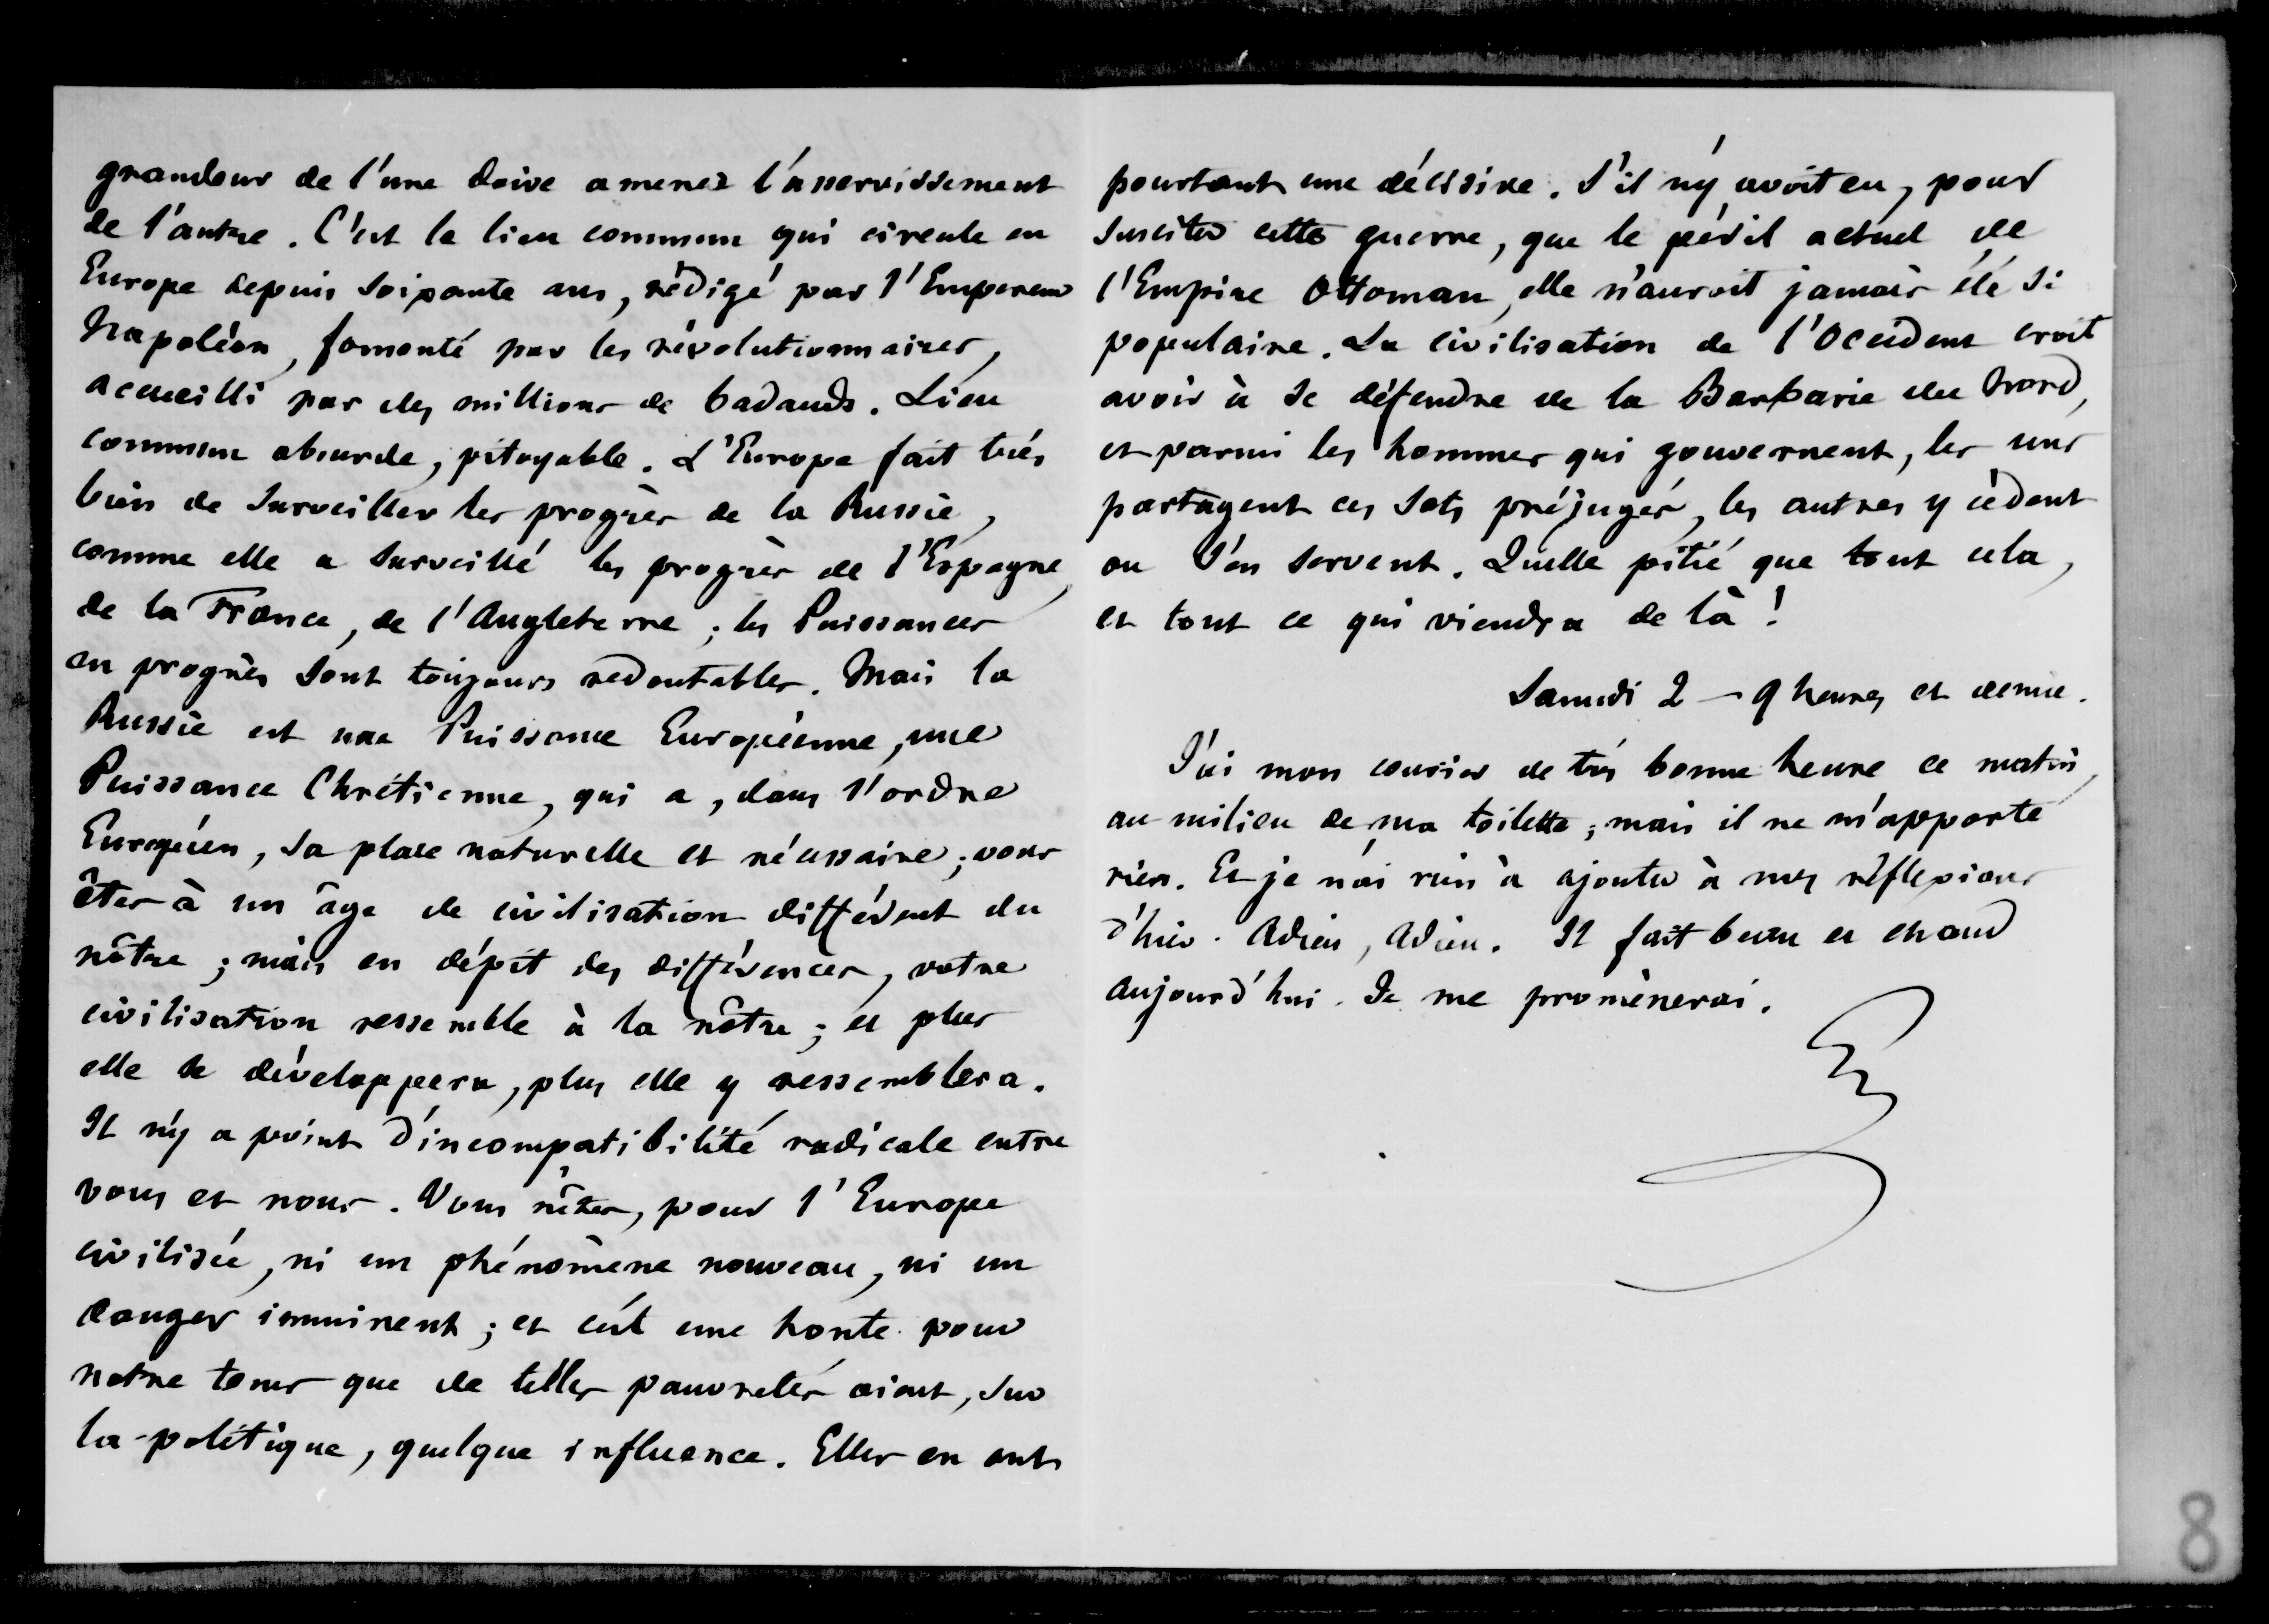 grandeur de l'une doive amener l'asservissement
de l'autre. C'est le lieu commun qui circule en
Europe depuis soixante ans, rédigé par l'Empereur
Napoléon, fomenté par les révolutionnaires,
accueilli par des millions de badauds. Lieu
commun absurde, pitoyable. L'Europe fait très
bien de surveiller les progrès de la Russie,
comme elle a surveillé les progrès de l'Espagne,
de la France, de l'Angleterre ; les Puissances
en progrès sont toujours redoutables. Mais la
Russie est une Puissance Européenne, une
Puissance Chrétienne, qui a, dans l'ordre
Européen, sa place naturelle et nécessaire ; vous
êtes à un âge de civilisation différent du
nôtre ; mais en dépit des différences, votre
civilisation ressemble à la nôtre ; et plus
elle se développera, plus elle y ressemblera.
Il n'y a point d'incompatibilité radicale entre
vous et nous. Vous n'êtes, pour l'Europe
civilisée, ni un phénomène nouveau, ni un
danger imminent ; et c'est une honte pour
notre tems que de telles pauvretés aient, sur
la politique, quelque influence. Elles en ont
pourtant une décisive. S'il n'y avoit eu, pour
susciter cette guerre, que le péril actuel de
l'Empire Ottoman, elle n'auroit jamais été si
populaire. La civilisation de l'Occident croit
avoir à se défendre de la Barbarie du Nord,
et parmi les hommes qui gouvernent, les uns
partagent ces sots préjugés, les autres y cèdent
ou s'en servent. Quelle pitié que tout cela,
et tout ce qui viendra de là !
Samedi 2 - 9 heures et demie.
J'ai mon courier de très bonne heure ce matin,
au milieu de ma toilette ; mais il ne m'apporte
rien. Et je n'ai rien à ajouter à mes réflexions
d'hier. Adieu, Adieu. Il fait beau et chaud
aujourd'hui. Je me promènerai.
8